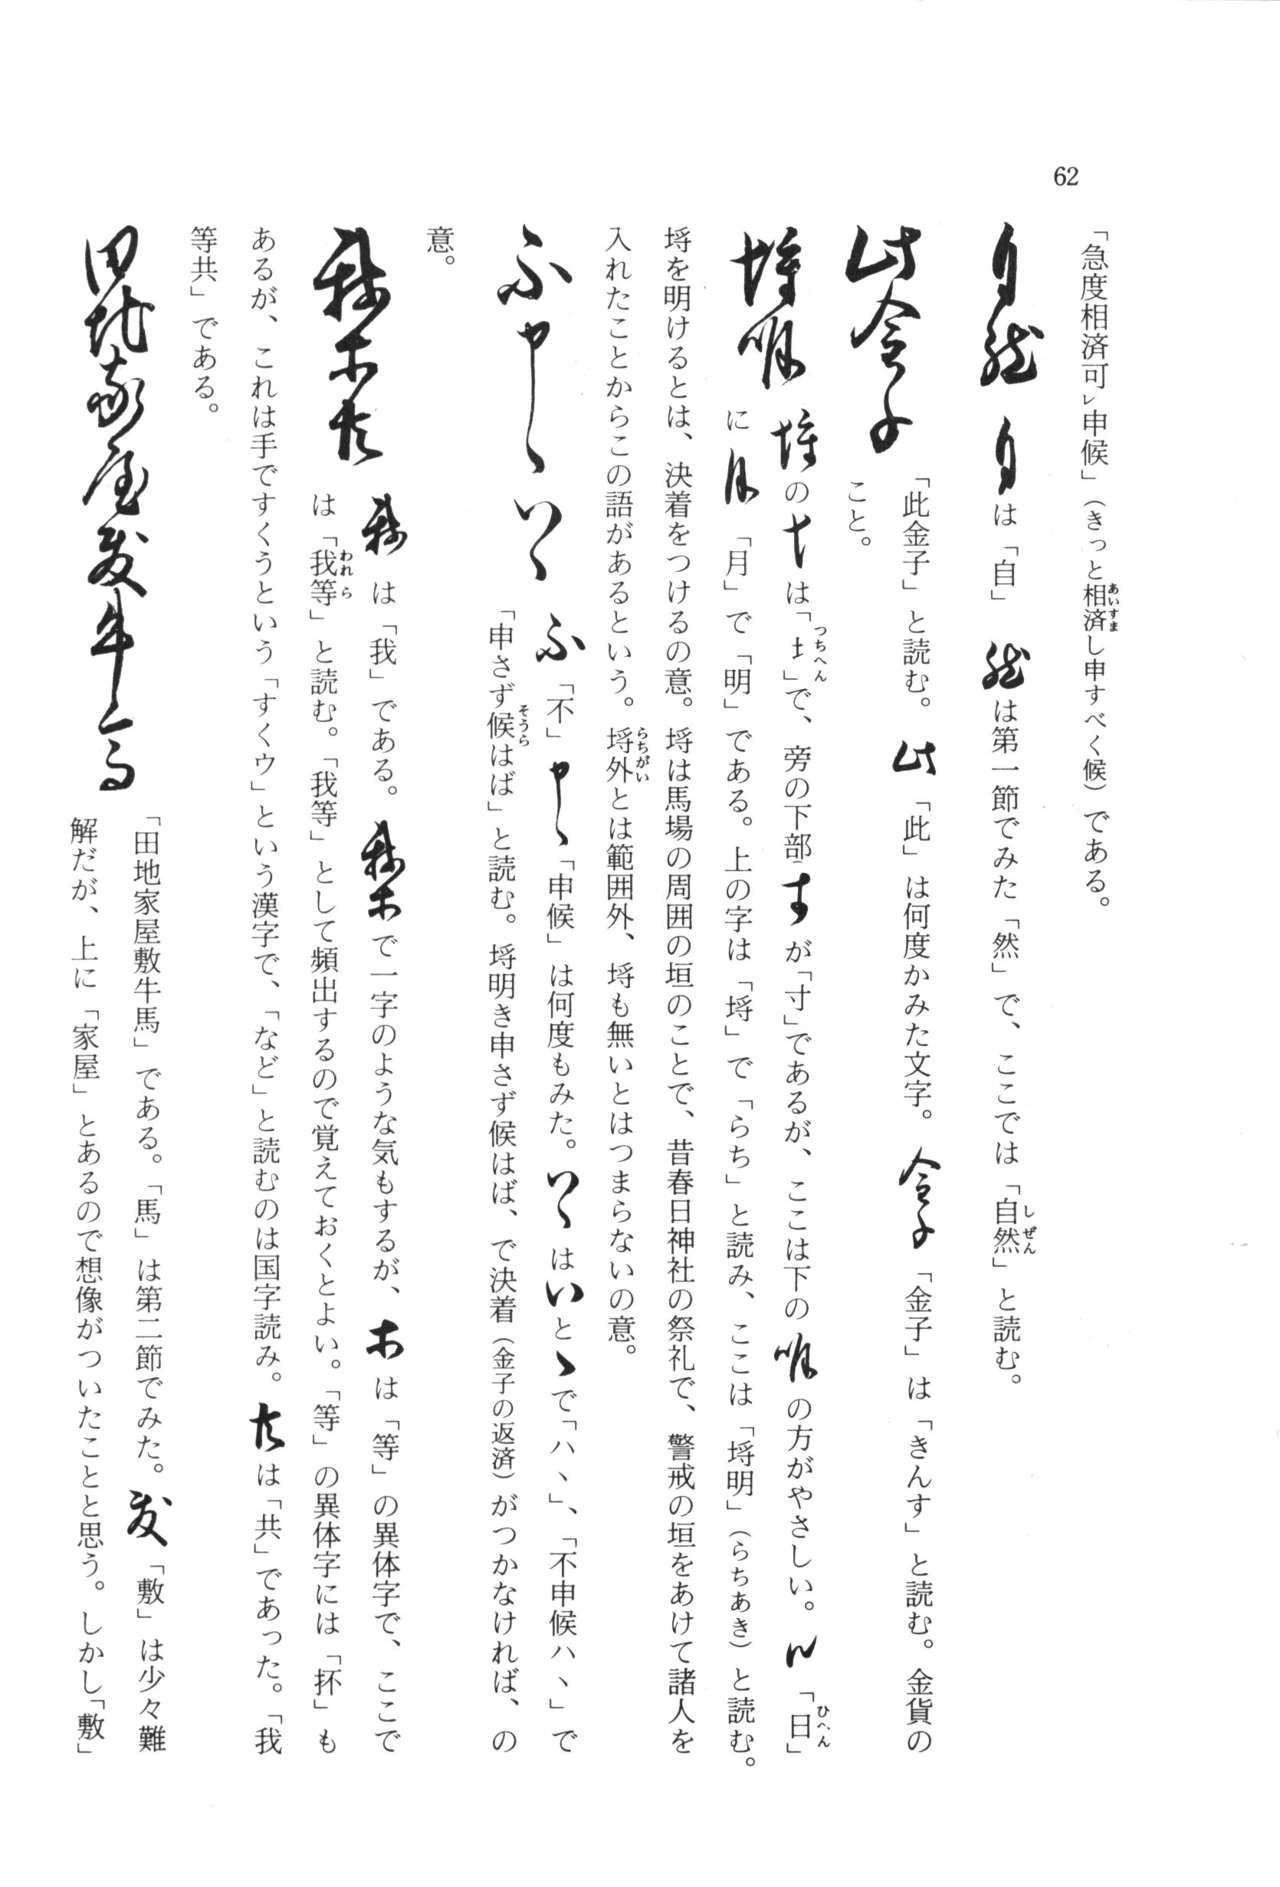 62
「急度相済可レ申候」(きっと相済し申すべく候)である。
あいすま
自然 自は「自」 然は第一節でみた「然」で、ここでは「自然」と読む。
しぜん
此金子 「此金子」と読む。此「此」は何度かみた文字。金子「金子」は「きんす」と読む。金貨の
こと。
埒明 埒の土は「土」で、旁の下部寸が「寸」であるが、ここは下の明の方がやさしい。日「日」
つちへん
ひへん
に月「月」で「明」である。上の字は「埒」で「らち」と読み、ここは「埒明」(らちあき)と読む。
埒を明けるとは、決着をつけるの意。埒は馬場の周囲の垣のことで、昔春日神社の祭礼で、警戒の垣をあけて諸人を
入れたことからこの語があるという。埒外とは範囲外、埒も無いとはつまらないの意。
らちがい
不申候ハヽ 不「不」申候「申候」は何度もみた。ハヽはハとヽで「ハヽ」、「不申候ハヽ」で
「申さず候はば」と読む。埒明き申さず候はば、で決着(金子の返済)がつかなければ、の
そうら
意。
我等共 我は「我」である。我等で一字のような気もするが、等は「等」の異体字で、ここで
は「我等」と読む。「我等」として頻出するので覚えておくとよい。「等」の異体字には「抔」も
われら
あるが、これは手ですくうという「すくウ」という漢字で、「など」と読むのは国字読み。共は「共」であった。「我
等共」である。
田地家屋敷牛馬 「田地家屋敷牛馬」である。「馬」は第二節でみた。敷「敷」は少々難
解だが、上に「家屋」とあるので想像がついたことと思う。しかし「敷」